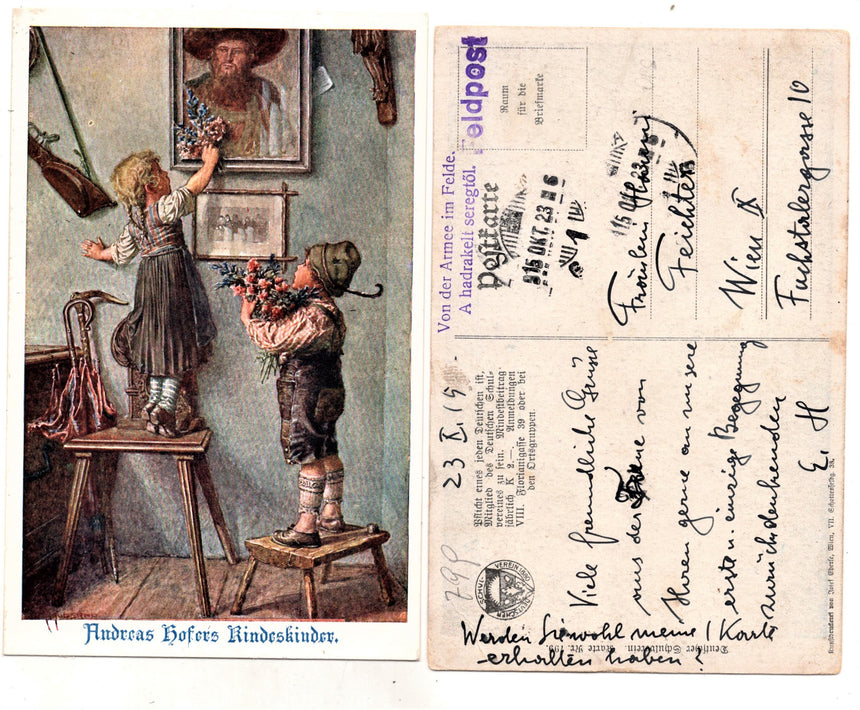 Andreas Hofers Kindeskinder.
Von der Armee im Felde.
A hadrakelt seregtől.
Feldpost
Raum
für die
Briefmarke
Postkarte
915 OKT. 23
Fräulein
Feichter
Wien IX
Fuchstalergasse 10
23 X. 15.
Pflicht eines jeden Deutschen ist,
Mitglied des Deutschen Schul-
vereines zu sein. Mindestbeitrag
jährlich K 2.—. Anmeldungen
VIII. Florianigasse 39 oder bei
den Ortsgruppen.
799
DEUTSCHER SCHULVEREIN 1880
Viele freundliche Grüsse
aus der Ferne von
Ihren gerne an unsere
erste u. einzige Begegnung
zurückdenkenden
E. H
Werden Sie wohl meine 1 Karte
erhalten haben?
Deutscher Schulverein. Karte Nr. 799.
Kunstdruckerei von Josef Eberle, Wien, VII. Schottenfeldg. 38.